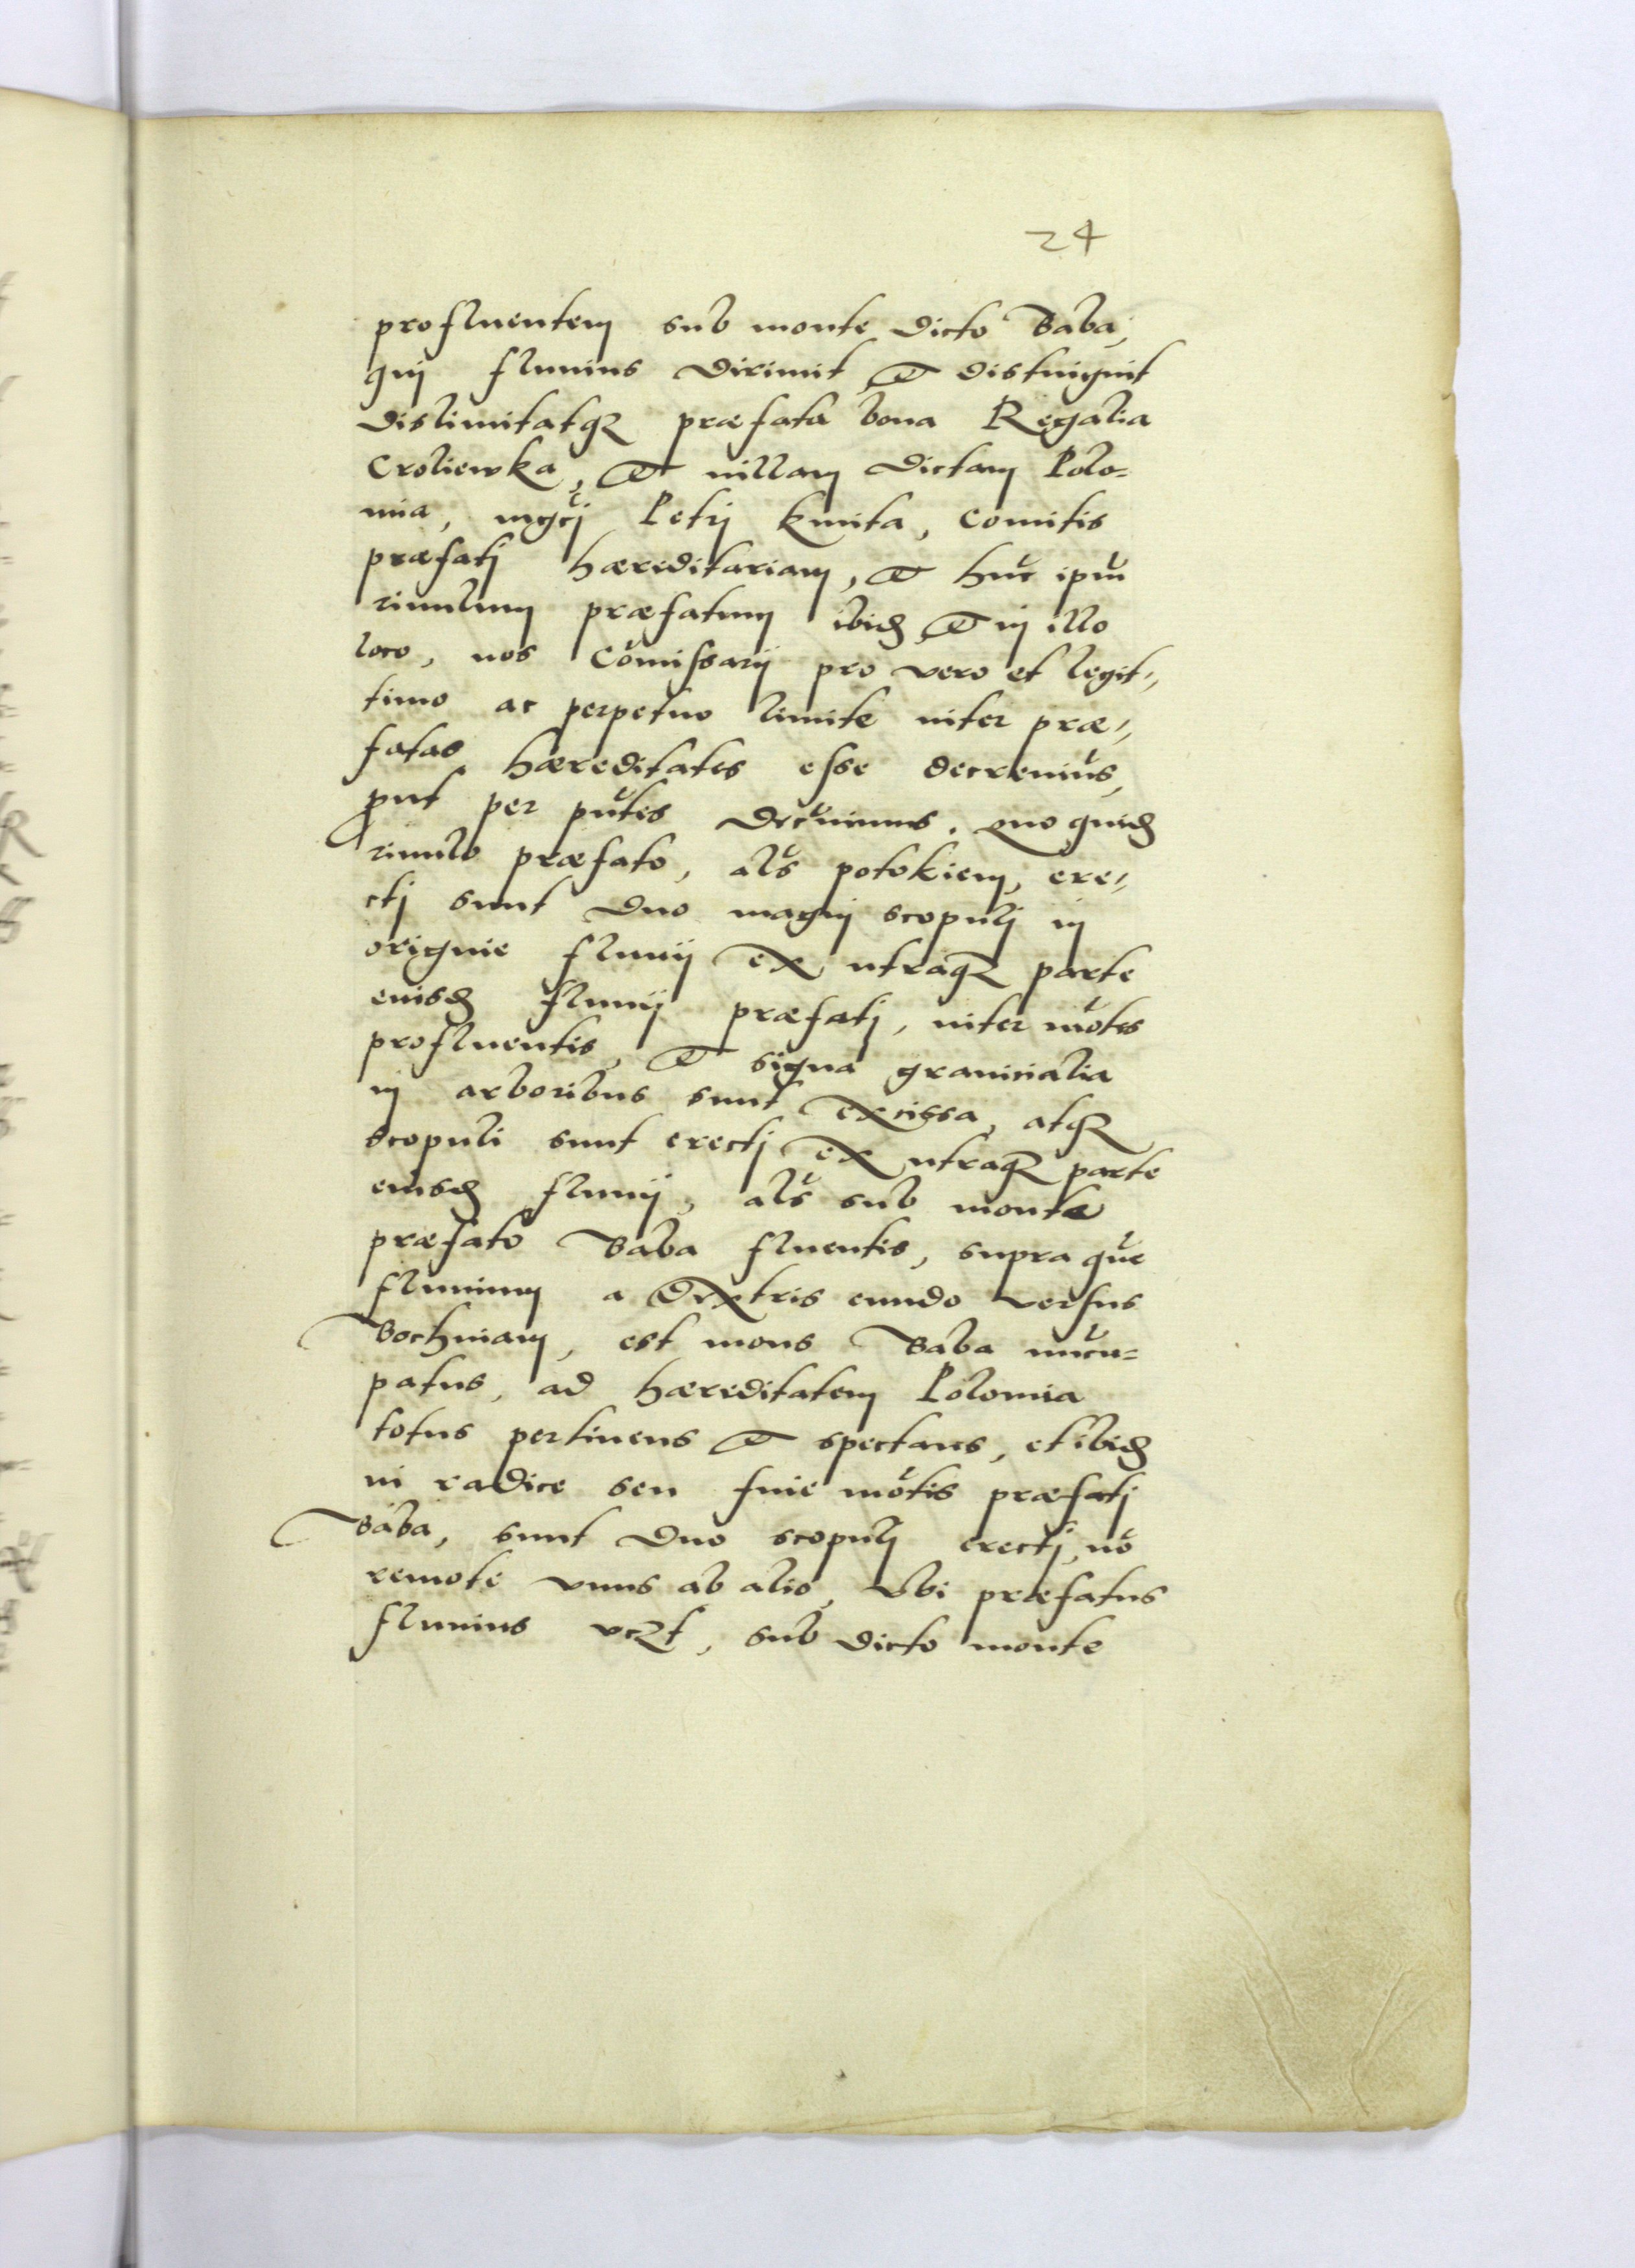 24
profluentem sub monte dicto Baba,
quj fluuius dirimit et distinguit
dislimitatq3 præfata bona Regalia
Croliewka, et uillam dictam Polo=
mia, mgcj Petrj Kmita, Comitis
præfatj hæreditariam, et hūc ipm̄
riuulum præfatum ibid. et in illo
loco, nos Cōmissarij pro vero et legit=
timo ac perpetuo limite inter præ=
fatas hæreditates esse decreuim9,
prout per pn̄tes decernimus. Quo quid.
riuulo præfato, als̄ potokiem, ere=
ctj sunt duo magnj scopulj in
origine fluuij ex utraq3 parte
eiusd. fluuij præfatj, inter mōtes
profluentis, et signa granicialia
in arboribus sunt excissa, atq3
scopuli sunt erectj ex utraq3 parte
eiusd. fluuij, als̄ sub monte
præfato Baba fluentis, supra quē
fluuium a dextris eundo versus
Bochniam, est mons Baba nūcu=
patus, ad hæreditatem Polomia
totus pertinens et spectans, et ibid.
in radice seu fine mōtis præfatj
Baba, sunt duo scopulj erectj, nō
remote vnus ab alio, Vbi præfatus
fluuius sub dicto monte